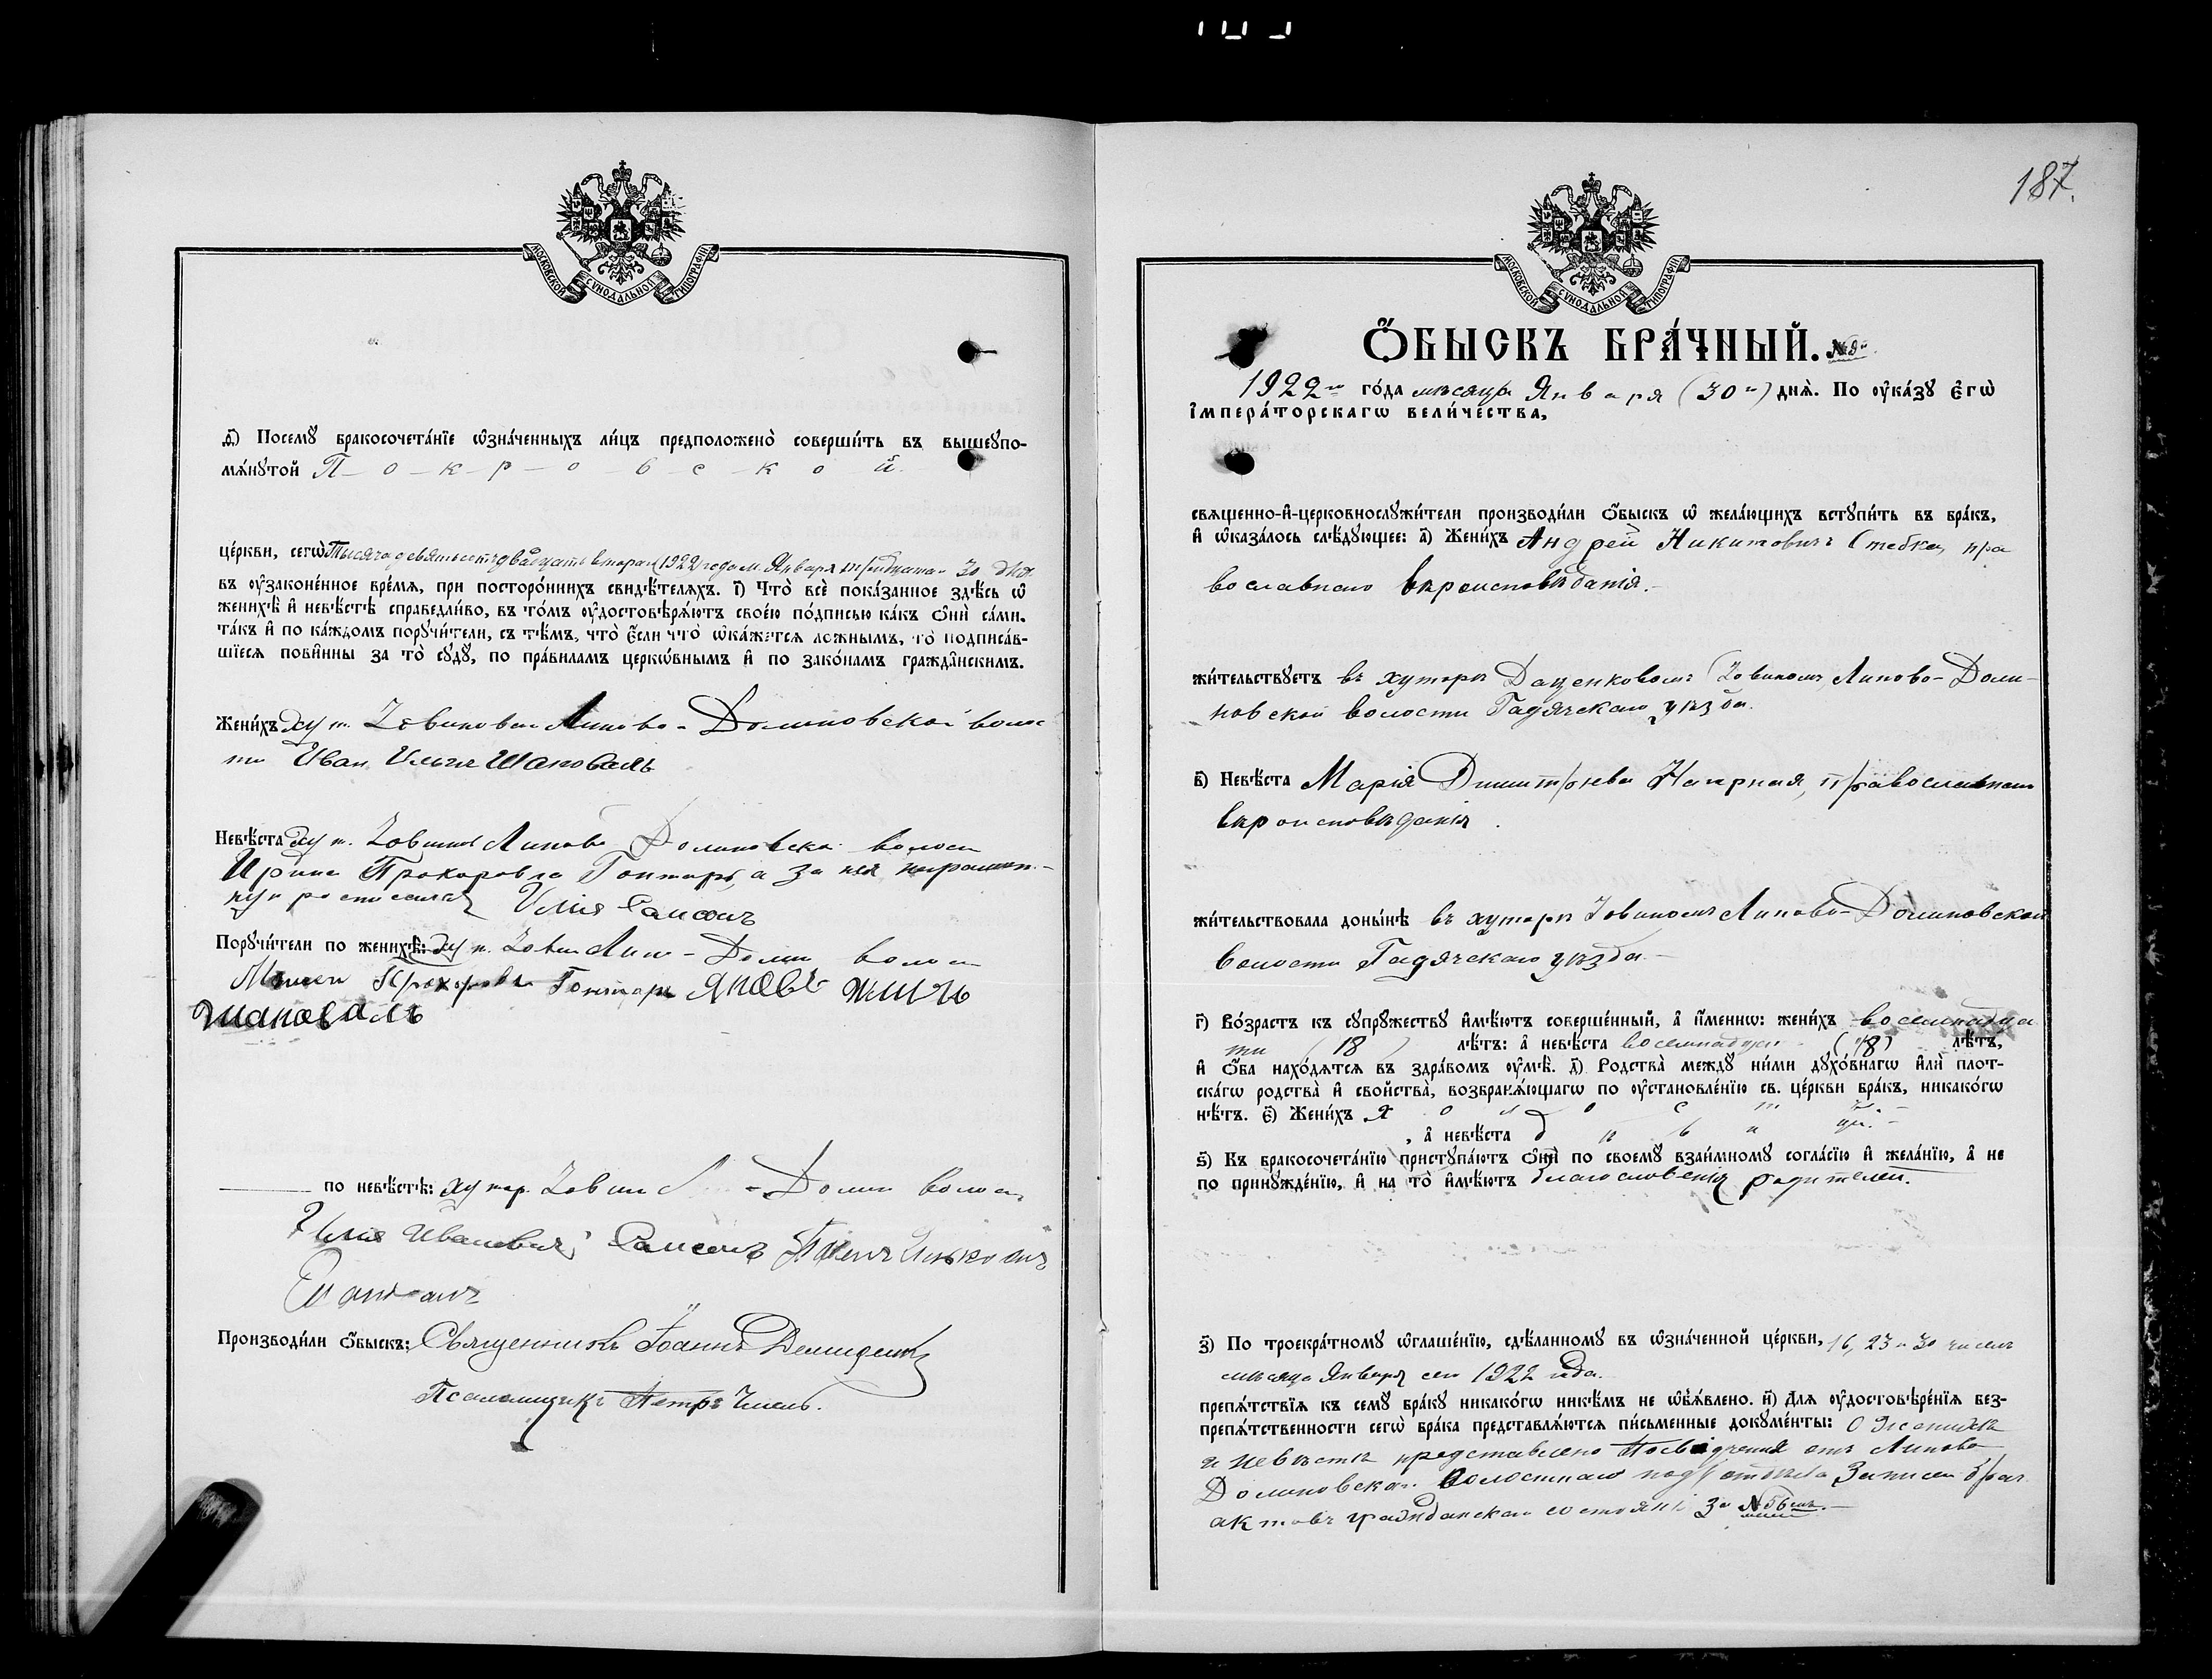 МОСКОВСКОЙ СѴНОДАЛЬНОЙ ТИПОГРАФІИ
ѳ҃) Посемꙋ̀ бракосочета́нїе ѡ҆зна́ченныхъ ли́цъ предположено̀ соверши́ть въ вышеꙋпо-
мѧ́нꙋтой П-о-к-р-о-в-с-к-о-й
це́ркви, сегѡ̀ Тысяча девятьсотъ двадцать второго (1922) года м. Января тридцатаго 30 дня
въ ᲂу҆зако́ненное вре́мѧ, при посторо́ннихъ свидѣ́телѧхъ. і҃) Что̀ всѐ пока́занное здѣ́сь ѡ҆
женихѣ̀ и҆ невѣ́стѣ справедли́во, въ то́мъ ᲂу҆достовѣрѧ́ютъ свое́ю по́дписью ка́къ ѻ҆нѝ са́ми.
та́къ и҆ по ка́ждомъ порꙋчи́тели, съ тѣ́мъ, что̀ є҆́сли что̀ ѡ҆ка́жетсѧ ло́жнымъ, то̀ подписа́в-
шїесѧ пови́нны за то̀ сꙋдꙋ̀, по пра́виламъ церкѡ́внымъ и҆ по зако́намъ гражда̑нскимъ.
Жени́хъ хут. Липово-Долиновской волос
ти Иван Ильич Шаповалъ
Невѣ́ста хут. Липово Долиновско волос
Ирина Прокоровна Гонтарь, а за нея неграмот-
ную росписался Илія Самсонъ
Порꙋчи́тели по женихѣ̀: хут. Лип-Доли волос
Прохоровъ Гонтарь ЯКОВЪ
шаповалъ
по невѣ́стѣ: хутор. Л -Доли волос
Илія Ивановичъ Самсонъ
Производи́ли ѻ҆́быскъ: Священникъ Іоаннъ
Псаломщикъ Петръ
187.
МОСКОВСКОЙ СѴНОДАЛЬНОЙ ТИПОГРАФІИ
Ѻ҆́БЫСКЪ БРА́ЧНЫЙ. №
1922го го́да мѣсяца Января (30го) днѧ̀. По ᲂу҆ка́зꙋ Є҆гѡ̀
І҆мпера́торскагѡ вели́чества,
свѧщенно-и҆-церковнослꙋжи́тели производи́ли ѻ҆́быскъ ѡ҆ жела́ющихъ встꙋпи́ть въ бра́къ,
и҆ ѡ҆каза́лось слѣ́дꙋющее: а҃) Жени́хъ Андрей Никитовичъ Стебко, пра
вославнаго вѣроисповѣданія.-
жи́тельствꙋетъ въ хуторѣ Даценковомъ Липово-Доли-
новской волости Гадячскаго уѣзда.
в҃) Невѣ́ста Марія Димитріева Нагрная, православнаго
вѣроисповѣданія.
жи́тельствовала доны́нѣ въ хуторѣ Липово-Долиновской
волости Гадячскаго уѣзда.-
г҃) Во́зрастъ къ сꙋпрꙋ́жествꙋ и҆мѣ́ютъ соверше́нный, а҆ и҆́меннѡ: жени́хъ восемнадца
ти (18) лѣ́тъ: а҆ невѣ́ста восемнадцати (18) лѣ́тъ,
и҆ ѻ҆́ба нахо́дѧтсѧ въ здра́вомъ ᲂу҆мѣ̀. д҃) Родства̀ междꙋ̀ ни́ми дꙋхо́внагѡ и҆лѝ плот-
ска́гѡ родства̀ и҆ свойства̀, возбранѧ́ющагѡ по ᲂу҆становле́нїю св. це́ркви бра́къ, никако́гѡ
нѣ́тъ. є҃) Жени́хъ х о л о с т ъ.-
, а҆ невѣ́ста д ѣ в и ца.-
ѕ҃) Къ бракосочета́нїю пристꙋпа́ютъ ѻ҆нѝ по своемꙋ̀ взаи́мномꙋ согла́сїю и҆ жела́нїю, а҆ не
по принꙋжде́нїю, и҆ на то̀ и҆мѣ́ютъ благословенія родителей.
з҃) По троекра́тномꙋ ѡ҆глаше́нїю, сдѣ́ланномꙋ въ ѡ҆зна́ченной це́ркви, 16, 23 и 30 чиселъ
мѣсяца Января сего 1922 года.
препѧ́тствїѧ къ семꙋ̀ бра́кꙋ никако́гѡ никѣ́мъ не ѡ҆б̾ѧ́влено. и҃) Для ᲂу҆достовѣре́нїѧ без-
препѧ́тственности сегѡ̀ бра́ка представлѧ́ютсѧ пи́сьменные докꙋме́нты: О женихѣ
и невѣстѣ представлено Посвідчення отъ Липово
Долиновскаго Волостнаго подъотдѣла Записи брач.
актовъ гражданскаго состоянія за №